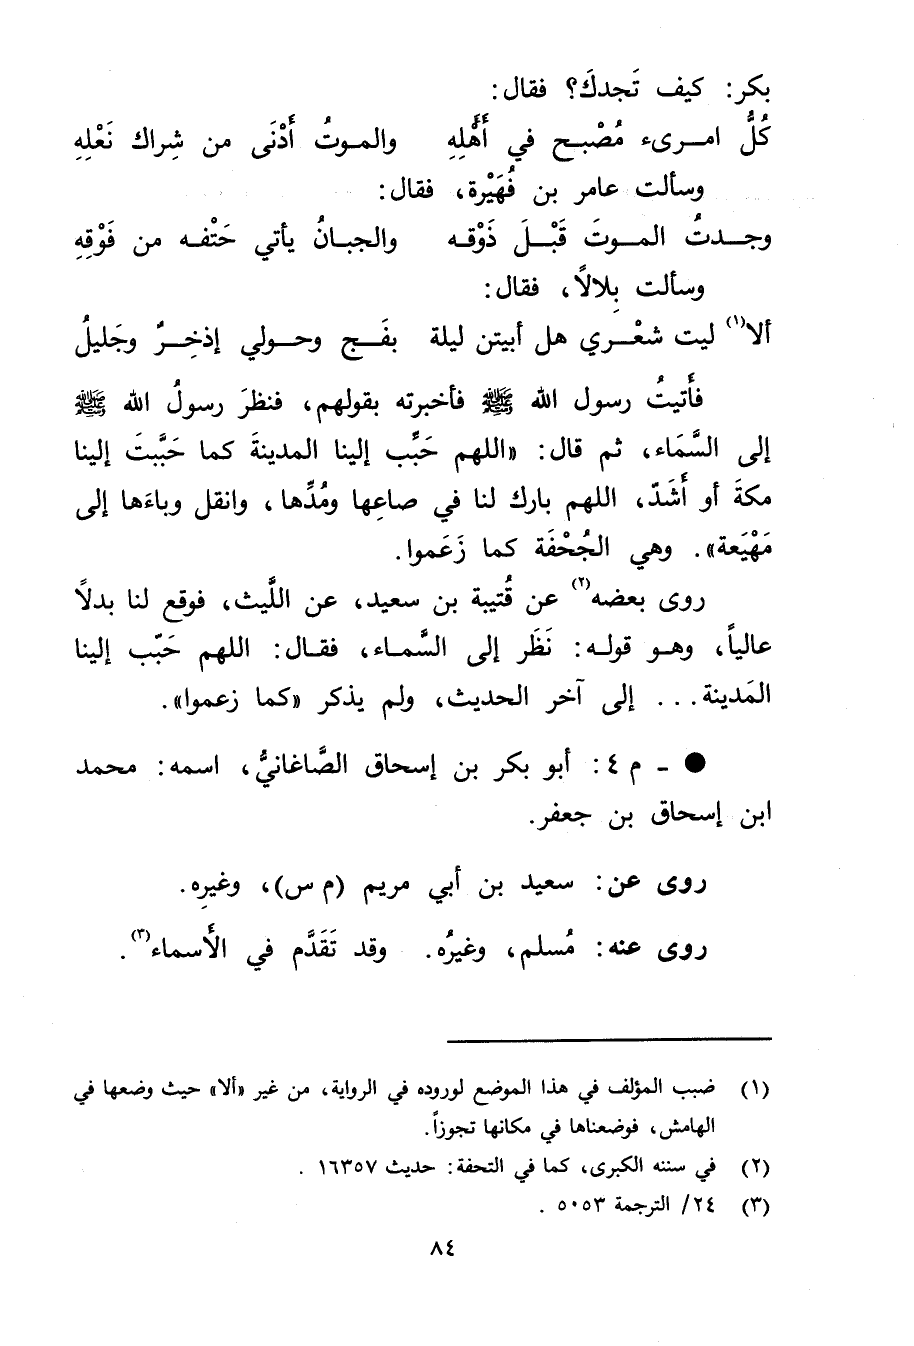 بكر: كيف تَجدكَ؟ فقال:
كُلُّ امـرىء مُصْبـح في أَهْلِهِ والمـوتُ أَدْنَى من شِراك نَعْلِهِ
وسألت عامر بن فُهَيْرة، فقال:
وجـدتُ المـوتَ قَبْـلَ ذَوْقـه والجبـانُ يأتي حَتْفـه من فَوْقِهِ
وسألت بِلالاً، فقال:
ألا(١) ليت شعْـري هل أبيتن ليلة بفَـج وحـولي إذخِـرٌ وجَليلُ
فأَتيتُ رسول الله ﷺ فأخبرته بقولهم، فنظرَ رسولُ الله ﷺ
إلى السَّمَاء، ثم قال: «اللهم حَبِّب إلينا المدينةَ كما حَبَّبتَ إلينا
مكةَ أو أَشَدّ، اللهم بارك لنا في صاعِها ومُدِّها، وانقل وباءَها إلى
مَهْيَعة». وهي الجُحْفَة كما زَعَموا.
روى بعضه(٢) عن قُتيبة بن سعيد، عن اللَّيث، فوقع لنا بدلاً
عالياً، وهـو قولـه: نَظَر إلى السَّمـاء، فقـال: اللهم حَبّب إلينا
المَدينة... إلى آخر الحديث، ولم يذكر «كما زعموا».
● ـ م ٤: أبو بكر بن إسحاق الصَّاغانيُّ، اسمه: محمد
ابن إسحاق بن جعفر.
روى عن: سعيد بن أبي مريم (م س)، وغيرِه.
روى عنه: مُسلم، وغيرُه. وقد تَقَدَّم في الأَسماء(٣).
(١) ضبب المؤلف في هذا الموضع لوروده في الرواية، من غير «ألا» حيث وضعها في
الهامش، فوضعناها في مكانها تجوزاً.
(٢) في سننه الكبرى، كما في التحفة: حديث ١٦٣٥٧ .
(٣) ٢٤/ الترجمة ٥٠٥٣ .
٨٤